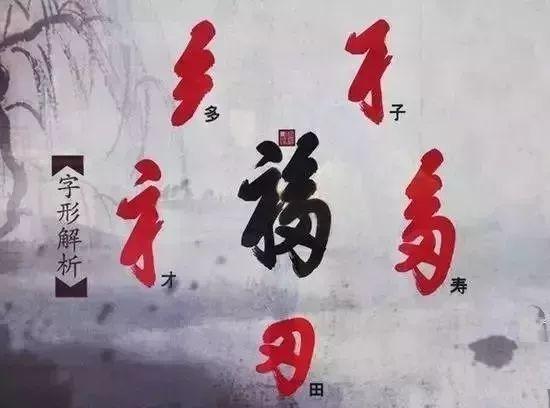 多
子
福
才
寿
田
【字形解析】